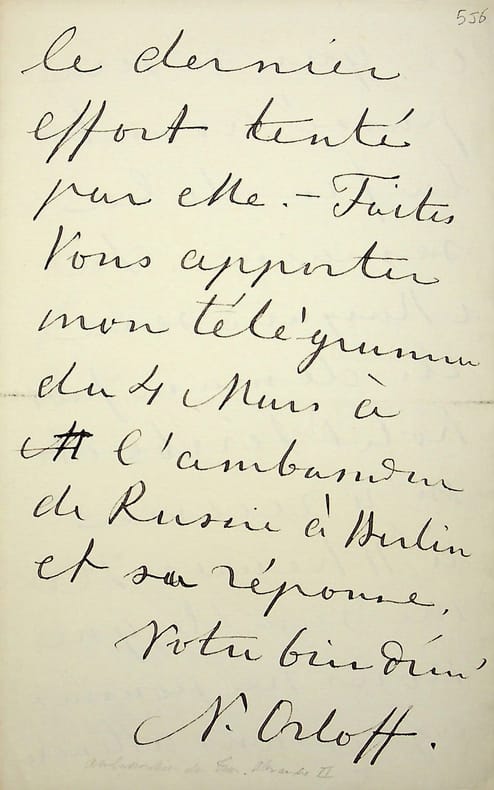 556
le dernier
effort tenté
par elle. – Faites
Vous apporter
mon télégramme
du 4 Mars à
l'ambassadeur
de Russie à Berlin
et sa réponse.
Votre bien dévoué
N. Orloff.
ambassadeur de Alexandre II